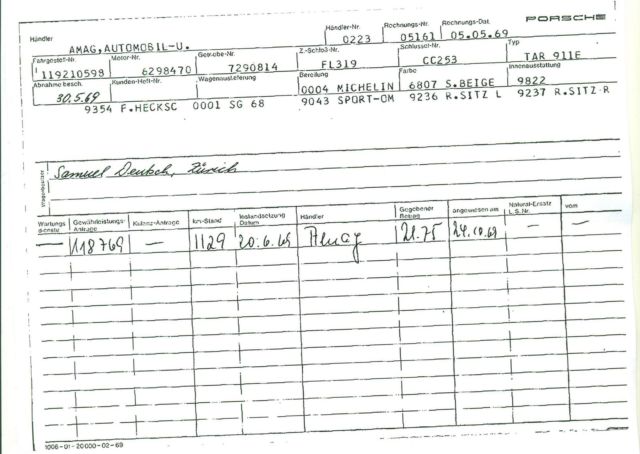 Händler Händler-Nr. Rechnungs-Nr. Rechnungs-Dat. PORSCHE
AMAG,AUTOMOBIL-U. 0223 05161 05.05.69
Fahrgestell-Nr. Motor-Nr. Getriebe-Nr. Z-Schloß-Nr. Schlüssel-Nr. Typ
119210598 6298470 7290814 FL319 CC253 TAR 911E
Abnahme besch. Kunden-Heft-Nr. Wagenauslieferung Bereifung Farbe Innenausstattung
30.5.69 0004 MICHELIN 6807 S.BEIGE 9822
9354 F.HECKSC 0001 SG 68 9043 SPORT-OM 9236 R.SITZ L 9237 R.SITZ R
Wagenbesitzer
Samuel Deutsch, Zürich
Wartungsdienst Gewährleistungs-Anträge Kulanz-Anträge km-Stand Instandsetzung Datum Händler Gegebener Betrag angewiesen am Natural-Ersatz L.S.Nr. vom
— 118769 — 1129 20.6.69 Amag 21.75 24.10.69 — —
1006-01-20000-02-69